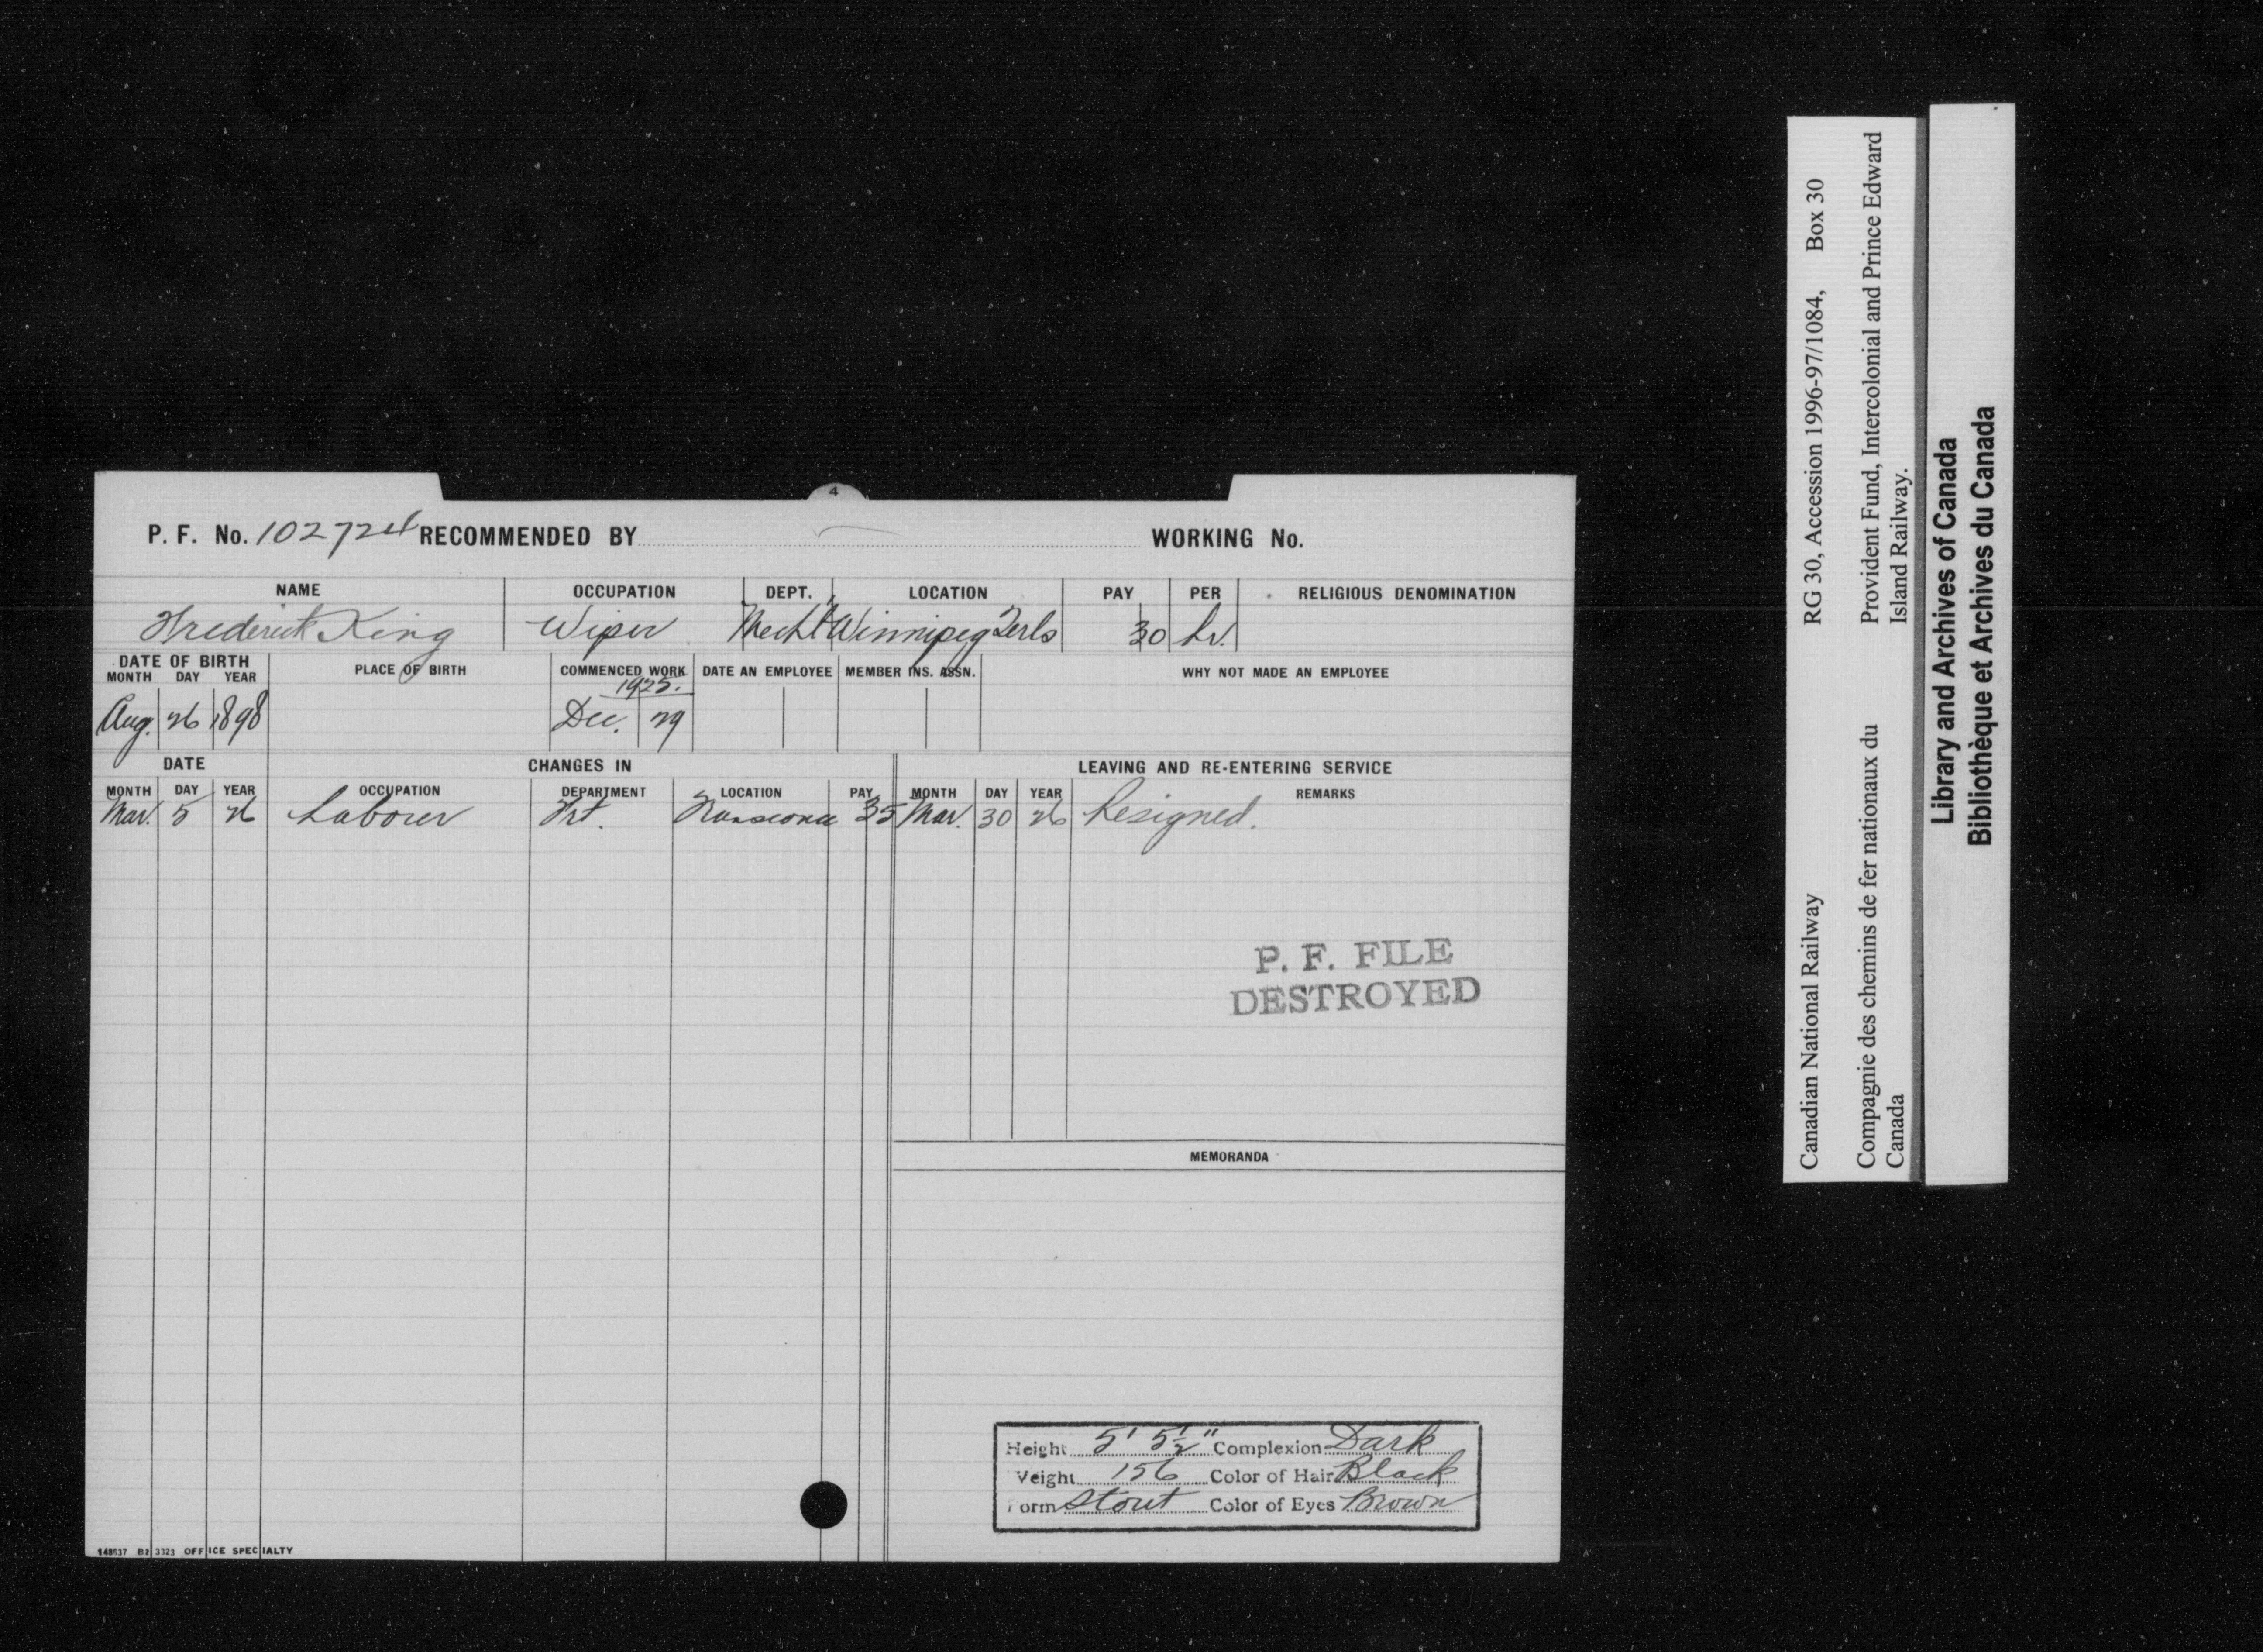 4
P. F. No. 102724 RECOMMENDED BY WORKING No.
NAME OCCUPATION DEPT. LOCATION PAY PER RELIGIOUS DENOMINATION
Frederick King Wiper Mech'l Winnipeg Terls 30 hr.
DATE OF BIRTH PLACE OF BIRTH COMMENCED WORK DATE AN EMPLOYEE MEMBER INS. ASSN. WHY NOT MADE AN EMPLOYEE
MONTH DAY YEAR
1925.
Aug. 26 1898 Dec. 29
DATE CHANGES IN LEAVING AND RE-ENTERING SERVICE
MONTH DAY YEAR OCCUPATION DEPARTMENT LOCATION PAY MONTH DAY YEAR REMARKS
Mar. 5 26 Labourer Frt. Transcona 35 Mar. 30 26 Resigned.
P. F. FILE
DESTROYED
MEMORANDA
Height 5' 5½" Complexion Dark
Weight 156 Color of Hair Black
Form Stout Color of Eyes Brown
148637 B2 3323 OFFICE SPECIALTY
Canadian National Railway RG 30, Accession 1996-97/1084, Box 30
Compagnie des chemins de fer nationaux du Provident Fund, Intercolonial and Prince Edward
Canada Island Railway.
Library and Archives of Canada
Bibliothèque et Archives du Canada